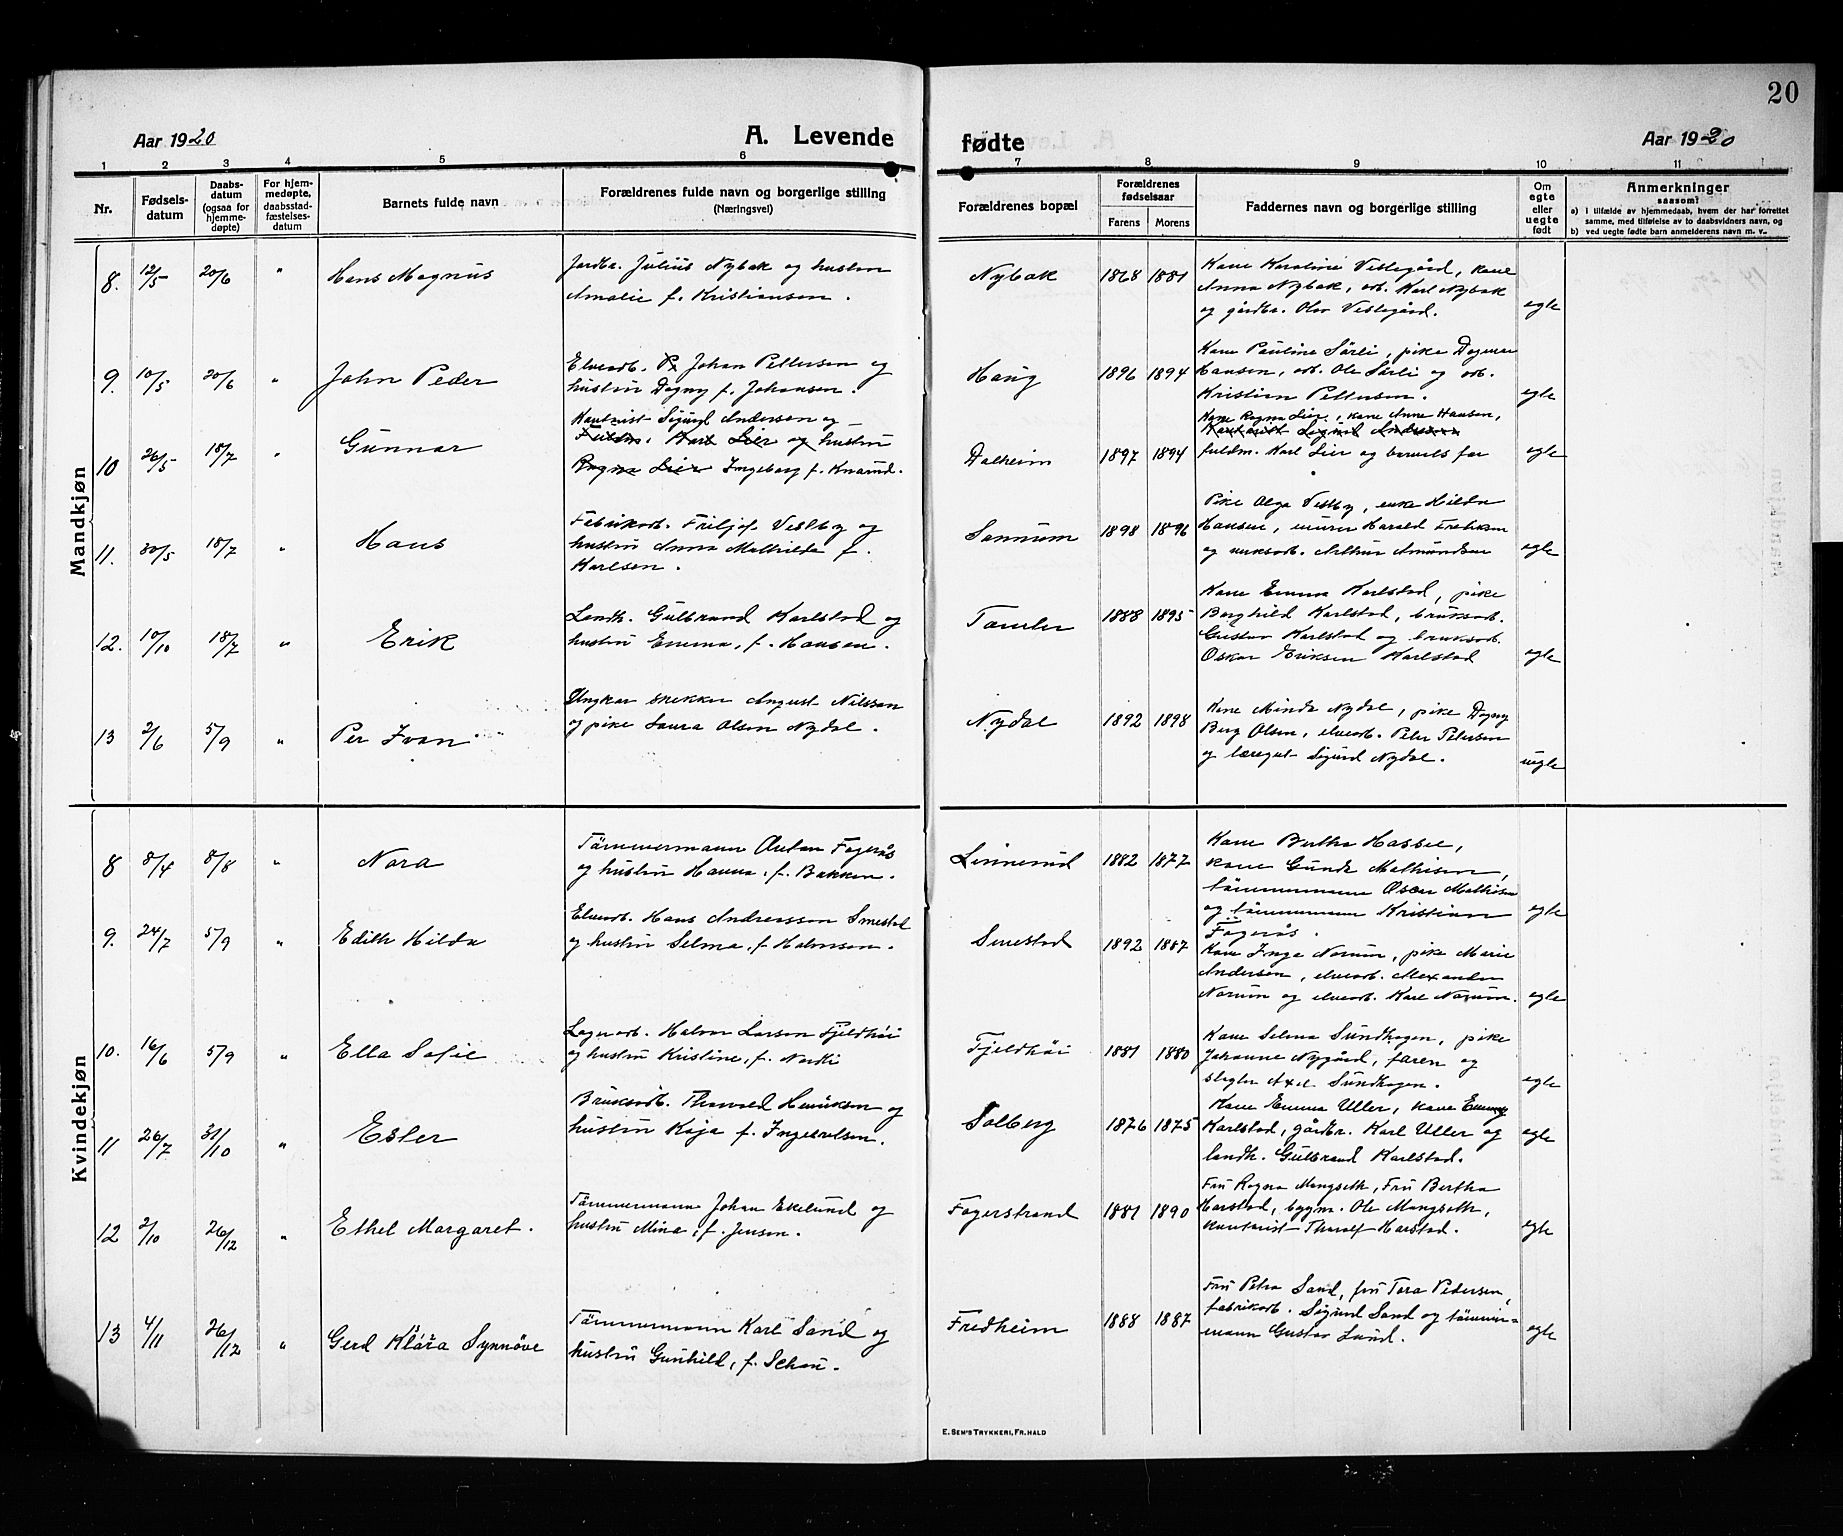 20
Aar 1920
A. Levende
fødte
Aar 1920
1 2 3 4 5 6 7 8 9 10 11
Nr.
Fødsels-
datum
Daabs-
datum
(ogsaa for
hjemme-
døpte)
For hjem-
medøpte,
daabsstad-
fæstelses-
datum
Barnets fulde navn
Forældrenes fulde navn og borgerlige stilling
(Næringsvei)
Forældrenes bopæl
Forældrenes
fødselsaar
Farens Morens
Faddernes navn og borgerlige stilling
Om
egte
eller
uegte
født
Anmerkninger
saasom:
a) i tilfælde av hjemmedaab, hvem der har forrettet
samme, med tilføielse av to daabsvidners navn, og
b) ved uegte fødte barn anmelderens navn m. v.
Mandkjøn
8. 12/5 20/6 " Hans Magnus
Jordbr. Julius Nybak og hustru
Amalie f. Kristiansen.
Nybak 1868 1881
Kone Karoline Vestegård, kone
Anna Nybak, arb. Karl Nybak
og gårdbr. Olav Vestegård.
egte
9. 10/5 20/6 " John Peder
Elvearb. Johan Pettersen og
hustru Dagny f. Johansen.
Haug 1896 1894
Kone Pauline Sørli, pike Dagmar
Hansen, arb. Ole Sørli og arb.
Kristian Pettersen.
egte
10 26/5 18/7 " Gunnar
Kontorist Sigurd Andersen og
Fuldm. Karl Lier og hustru
Ragna Lier Ingeborg f. Knarud.
Dalheim 1897 1894
Kone Ragna Lier, kone Anne Hansen,
Kontorist Sigurd Andersen
fuldm. Karl Lier og barnets far
egte
11. 30/5 18/7 " Hans
Fabrikarb. Fritjof Vestby og
hustru Anna Mathilda f.
Karlsen.
Sannum 1898 1896
Pike Olga Vestby, enke Hilda
Hansen, murer Harald Fredriksen
og bruksarb. Arthur Amundsen
egte
12. 10/10 18/7 " Erik
Landh. Gulbrand Karlstad og
hustru Emma, f. Hansen.
Tomter 1888 1895
Kone Emma Karlstad, pike
Borghild Karlstad, bruksarb.
Gustav Karlstad og bruksarb.
Oskar Eriksen Karlstad
egte
13 2/6 5/9 " Per Ivan
Ungkar snekker August Nilsson
og pike Laura Olsen Nydal.
Nydal 1892 1898
Kone Minda Nydal, pike Dagny
Berg Olsen, elvearb. Peter Petersen
og læregut Sigurd Nydal.
uegte
Kvindekjøn
8 8/4 8/8 " Nora
Tømmermann Anton Fagerås
og hustru Hanna, f. Bakken.
Linnerud 1882 1877
Kone Bertha Hassel,
kone Gunda Mathisen,
tømmermann Oscar Mathisen
og tømmermann Kristian
Fagerås.
egte
9. 24/7 5/9 " Edith Hilda
Elvearb. Hans Andreassen Smestad
og hustru Selma, f. Halvorsen.
Smestad 1892 1887
Kone Inga Norum, pike Marie
Andersen, elvearb. Alexander
Norum og elvearb. Karl Norum.
egte
10. 16/6 5/9 " Ella Sofie
Lagerarb. Halvor Larsen Fjeldhøi
og hustru Kristine, f. Narki
Fjeldhøi 1881 1880
Kone Selma Sundhagen, pike
Johanne Nygård, faren og
slagter Axel Sundhagen.
egte
11 26/7 31/10 " Ester
Bruksarb. Thorvald Henriksen og
hustru Kaja f. Ingebretsen.
Solberg 1876 1875
Kone Emma Uller, kone Emma
Karlstad, gårdbr. Karl Uller og
landh. Gulbrand Karlstad.
egte
12 2/10 26/12 " Ethel Margaret.
Tømmermann Johan Ekelund og
hustru Mina, f. Jensen.
Fagerstrand 1881 1890
Fru Ragna Mangseth, Fru Bertha
Harstad, bygm. Ole Mangseth,
kontorist Tharalf Harstad.
egte
13 4/11 26/12 " Gerd Klara Synnöve
Tømmermann Karl Sand og
hustru Gunhild, f. Schou.
Fredheim 1888 1887
Fru Petra Sand, fru Tora Pedersen,
fabrikarb. Sigurd Sand og tømmer-
mann Gustav Lund.
egte
E. SEM'S TRYKKERI, FR.HALD